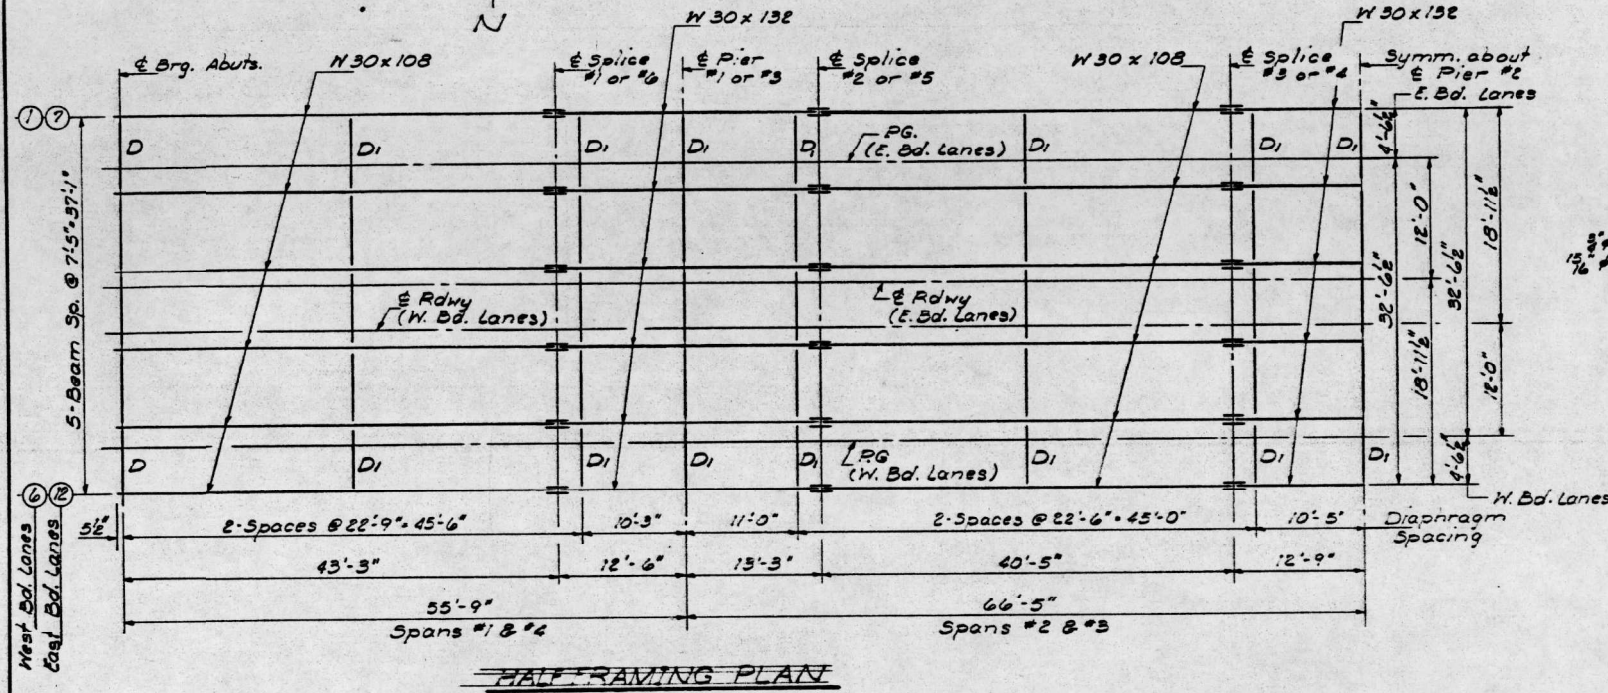 N
W 30 x 132
W 30 x 132
℄ Brg. Abuts.
W 30 x 108
℄ Splice
#1 or #6
℄ Pier
#1 or #3
℄ Splice
#2 or #5
W 30 x 108
℄ Splice
#3 or #4
Symm. about
℄ Pier #2
E. Bd. Lanes
1 7
D
D1
D1
D1
D1
P.G.
(E. Bd. Lanes)
D1
D1
D1
4'-6½"
5-Beam Sp. @ 7'-5"=37'-1"
12'-0"
18'-11½"
32'-6½"
32'-6½"
℄ Rdwy
(W. Bd. Lanes)
℄ Rdwy
(E. Bd. Lanes)
18'-11½"
12'-0"
D
D1
D1
D1
D1
P.G
(W. Bd. Lanes)
D1
D1
D1
4'-6½"
W. Bd. Lanes
6 12
West Bd. Lanes
East Bd. Lanes
5½"
2-Spaces @ 22'-9"=45'-6"
10'-3"
11'-0"
2-Spaces @ 22'-6"=45'-0"
10'-5"
Diaphragm
Spacing
43'-3"
12'-6"
13'-3"
40'-5"
12'-9"
55'-9"
Spans #1 & #4
66'-5"
Spans #2 & #3
HALF FRAMING PLAN